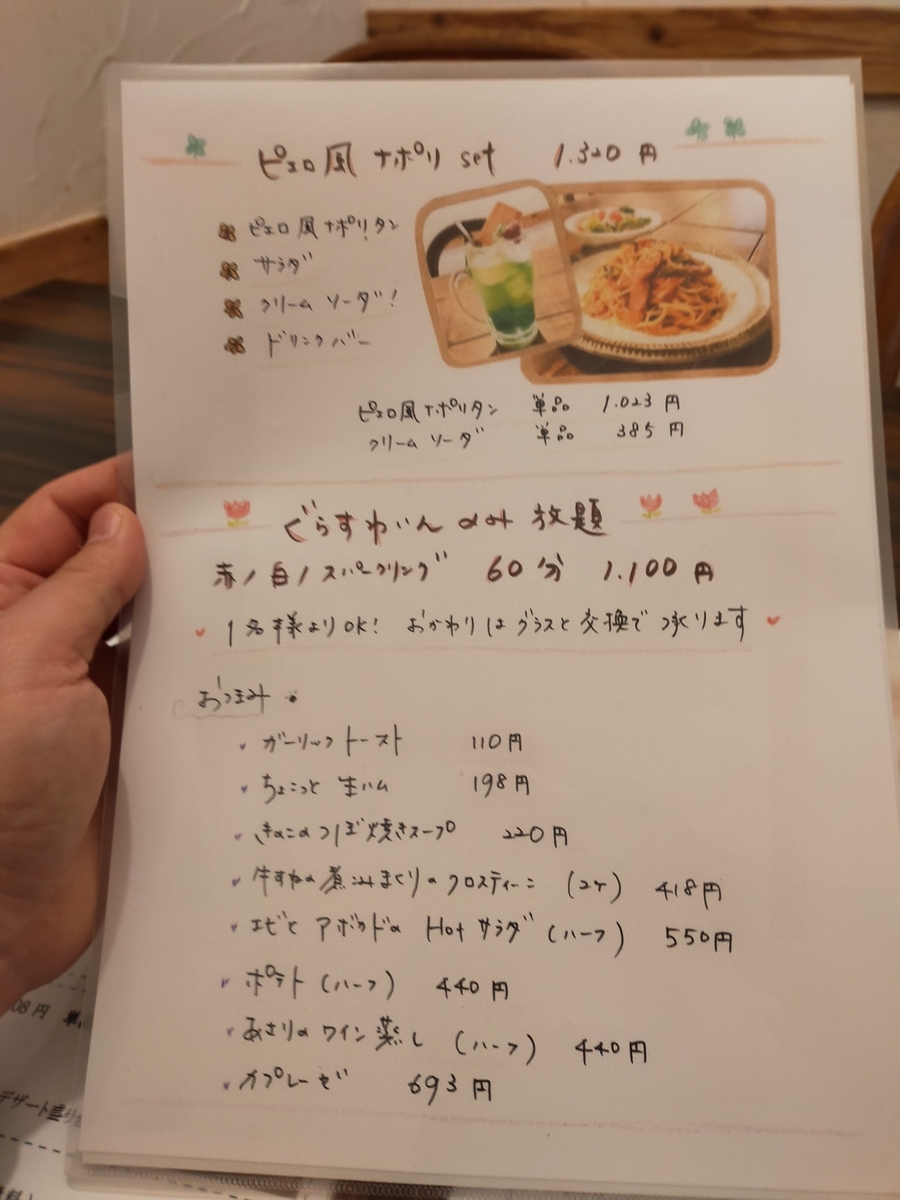 ピエロ風 ナポリ set 1.320 円
ピエロ風 ナポリタン
サラダ
クリーム ソーダ!
ドリンクバー
ピエロ風ナポリタン 単品 1.023 円
クリーム ソーダ 単品 385 円
ぐらすわいん のみ 放題
赤/白/スパークリング 60分 1.100 円
1名様よりOK! おかわりはグラスと交換で承ります
おつまみ
ガーリックトースト 110円
ちょこっと 生ハム 198円
きのこのつぼ焼きスープ 220円
牛すねの煮込みの クロスティーニ (2ケ) 418円
エビと アボカドの Hot サラダ (ハーフ) 550円
ポテト (ハーフ) 440円
あさりの ワイン 蒸し (ハーフ) 440円
カプレーゼ 693円
08円
デザート盛り